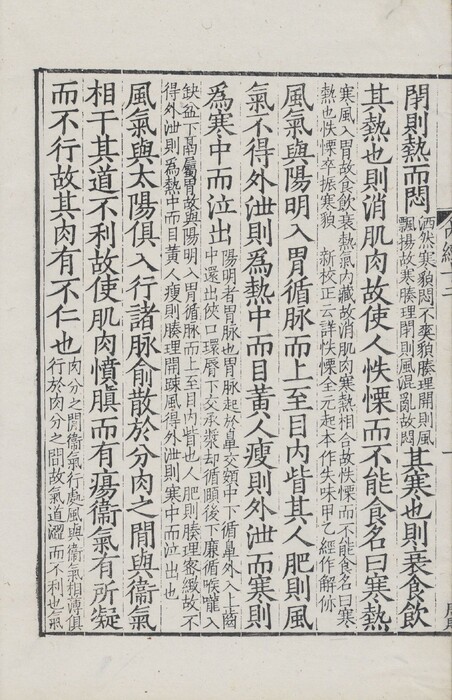 閉則熱而悶洒然寒貌悶不爽貌腠理開則風飄揚故寒腠理閉則風混亂故悶其寒也則衰食飲
其熱也則消肌肉故使人怢慄而不能食名曰寒熱
寒風入胃故食飲衰熱氣內藏故消肌肉寒熱相合故怢慄而不能食名曰寒熱也怢慄卒振寒貌 新校正云詳怢慄全元起本作失味甲乙經作解㑊
風氣與陽明入胃循脉而上至目內眥其人肥則風
氣不得外泄則為熱中而目黃人瘦則外泄而寒則
為寒中而泣出陽明者胃脉也胃脉起於鼻交頞中下循鼻外入上齒中還出俠口環脣下交承漿却循頤後下廉循喉嚨入
缺盆下鬲屬胃故與陽明入胃循脉而上至目內眥也人肥則腠理密緻故不得外泄則為熱中而目黃人瘦則腠理開踈風得外泄則寒中而泣出也
風氣與太陽俱入行諸脉俞散於分肉之間與衞氣
相干其道不利故使肌肉憤䐜而有瘍衞氣有所凝
而不行故其肉有不仁也肉分之間衞氣行處風與衞氣相薄俱行於肉分之間故氣道澀而不利也氣
內經十二